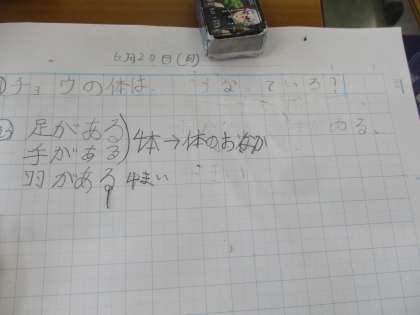 6月20日(月)
チョウの体は、 うなっているろ?
足がある
手がある 4本→体のおなか
羽がある 4まい